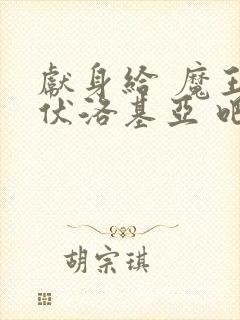 獻身給 魔王
伏洛基亞 吧
胡宗琪